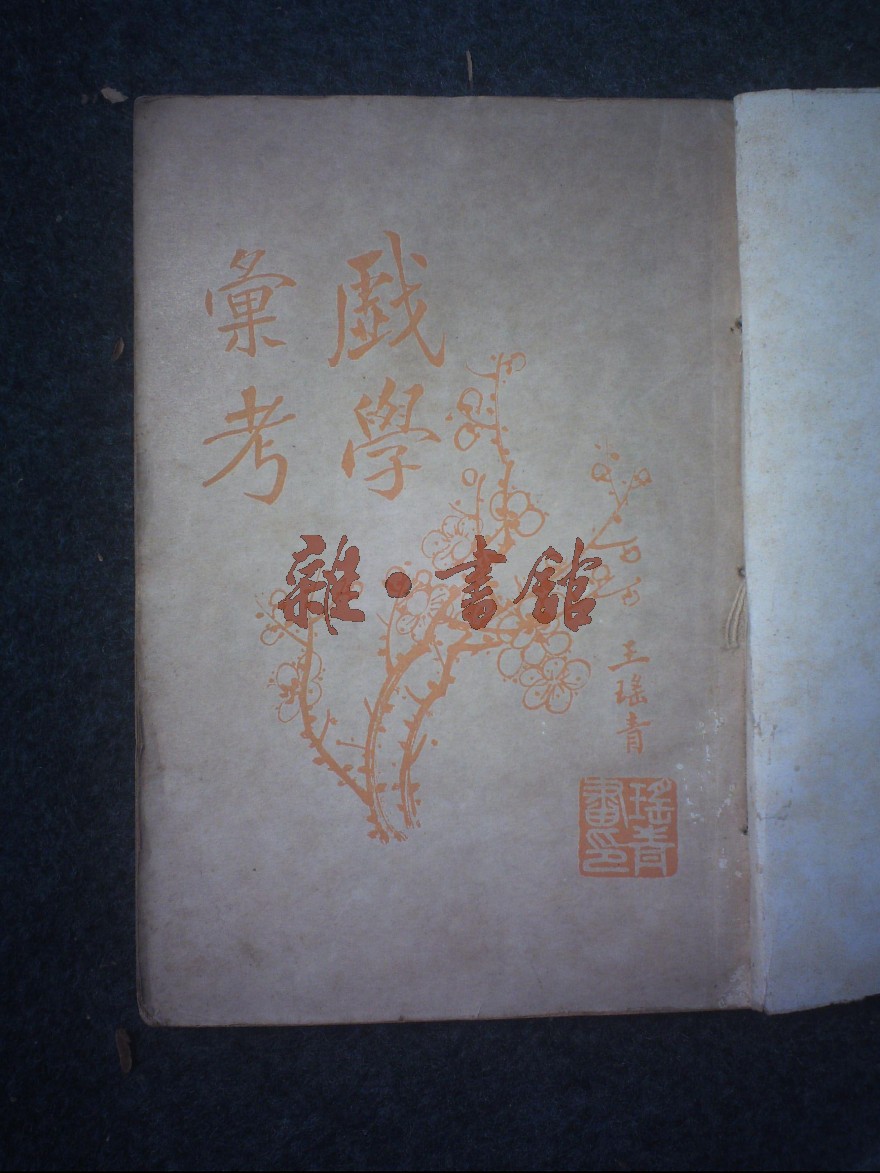 戲學
彙考
雜·書館
王瑤青
瑤青
畫印